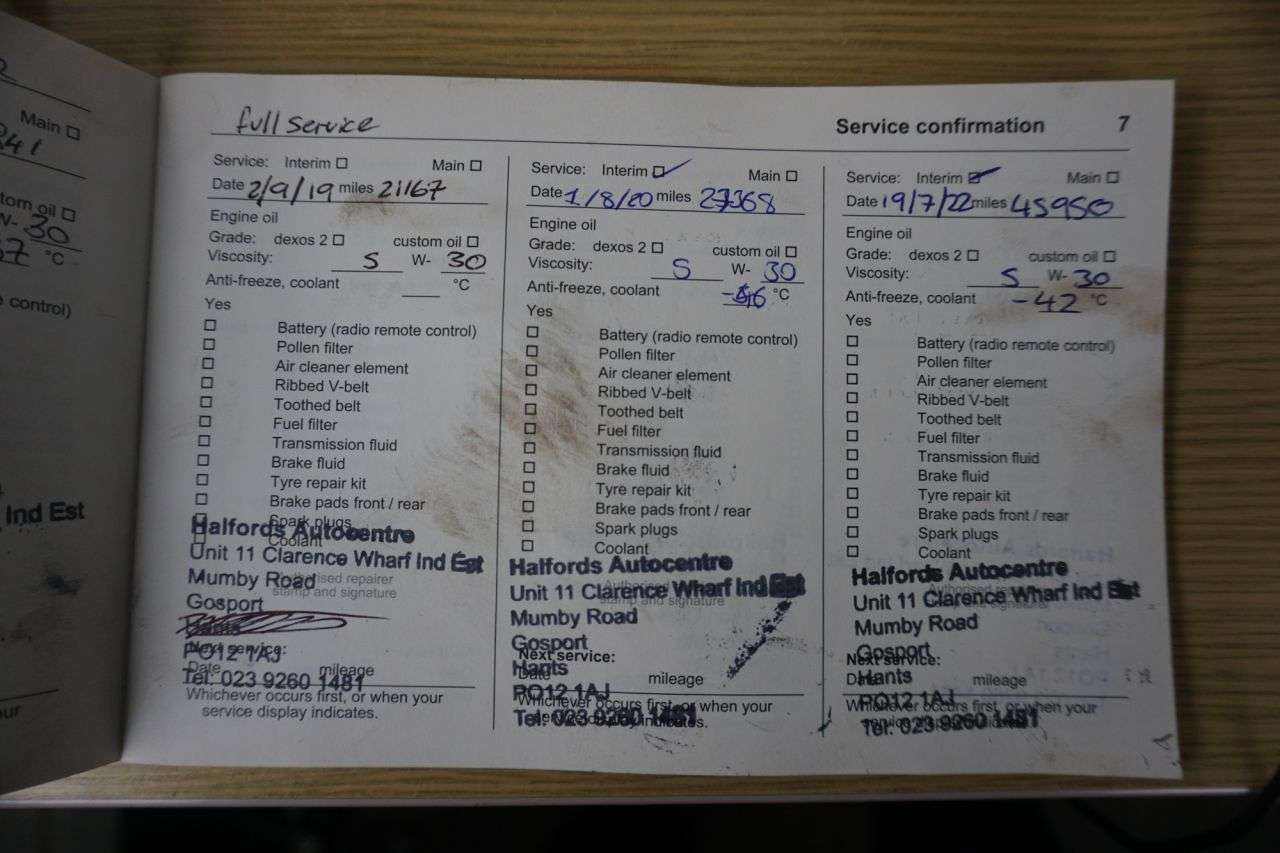 2
Main ☐
341
tom oil ☐
W- 30
37 °C
control)
Ind Est
full service
Service confirmation 7
Service: Interim ☐ Main ☐
Date 2/9/19 miles 21167
Engine oil
Grade: dexos 2 ☐ custom oil ☐
Viscosity: 5 W- 30
Anti-freeze, coolant °C
Yes
☐ Battery (radio remote control)
☐ Pollen filter
☐ Air cleaner element
☐ Ribbed V-belt
☐ Toothed belt
☐ Fuel filter
☐ Transmission fluid
☐ Brake fluid
☐ Tyre repair kit
☐ Brake pads front / rear
☐ Spark plugs
☐ Coolant
Halfords Autocentre
Unit 11 Clarence Wharf Ind Est
Mumby Road
stamp and signature
Gosport
PO12 1AJ
Next service:
Date mileage
Tel. 023 9260 1481
Whichever occurs first, or when your
service display indicates.
Service: Interim ☑ Main ☐
Date 1/8/20 miles 27368
Engine oil
Grade: dexos 2 ☐ custom oil ☐
Viscosity: 5 W- 30
Anti-freeze, coolant °C
Yes
☐ Battery (radio remote control)
☐ Pollen filter
☐ Air cleaner element
☐ Ribbed V-belt
☐ Toothed belt
☐ Fuel filter
☐ Transmission fluid
☐ Brake fluid
☐ Tyre repair kit
☐ Brake pads front / rear
☐ Spark plugs
☐ Coolant
Halfords Autocentre
Unit 11 Clarence Wharf Ind Est
stamp and signature
Mumby Road
Gosport
Next service:
Hants
Date mileage
PO12 1AJ
Whichever occurs first, or when your
Tel: 023 9260 1481
Service: Interim ☑ Main ☐
Date 19/7/22 miles 45950
Engine oil
Grade: dexos 2 ☐ custom oil ☐
Viscosity: 5 W- 30
Anti-freeze, coolant -42 °C
Yes
☐ Battery (radio remote control)
☐ Pollen filter
☐ Air cleaner element
☐ Ribbed V-belt
☐ Toothed belt
☐ Fuel filter
☐ Transmission fluid
☐ Brake fluid
☐ Tyre repair kit
☐ Brake pads front / rear
☐ Spark plugs
☐ Coolant
Halfords Autocentre
Unit 11 Clarence Wharf Ind Est
Mumby Road
Gosport
Next service:
Hants
mileage
PO12 1AJ
Whichever occurs first, or when your
Tel: 023 9260 1481